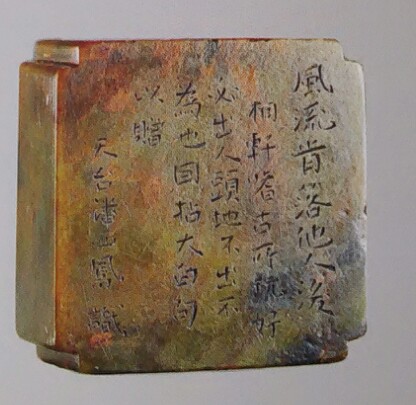 風流肯落他人後
桐軒嗜古所玩好
必出人頭地不出不
為也因拈太白句
以贈
天台潘西鳳識